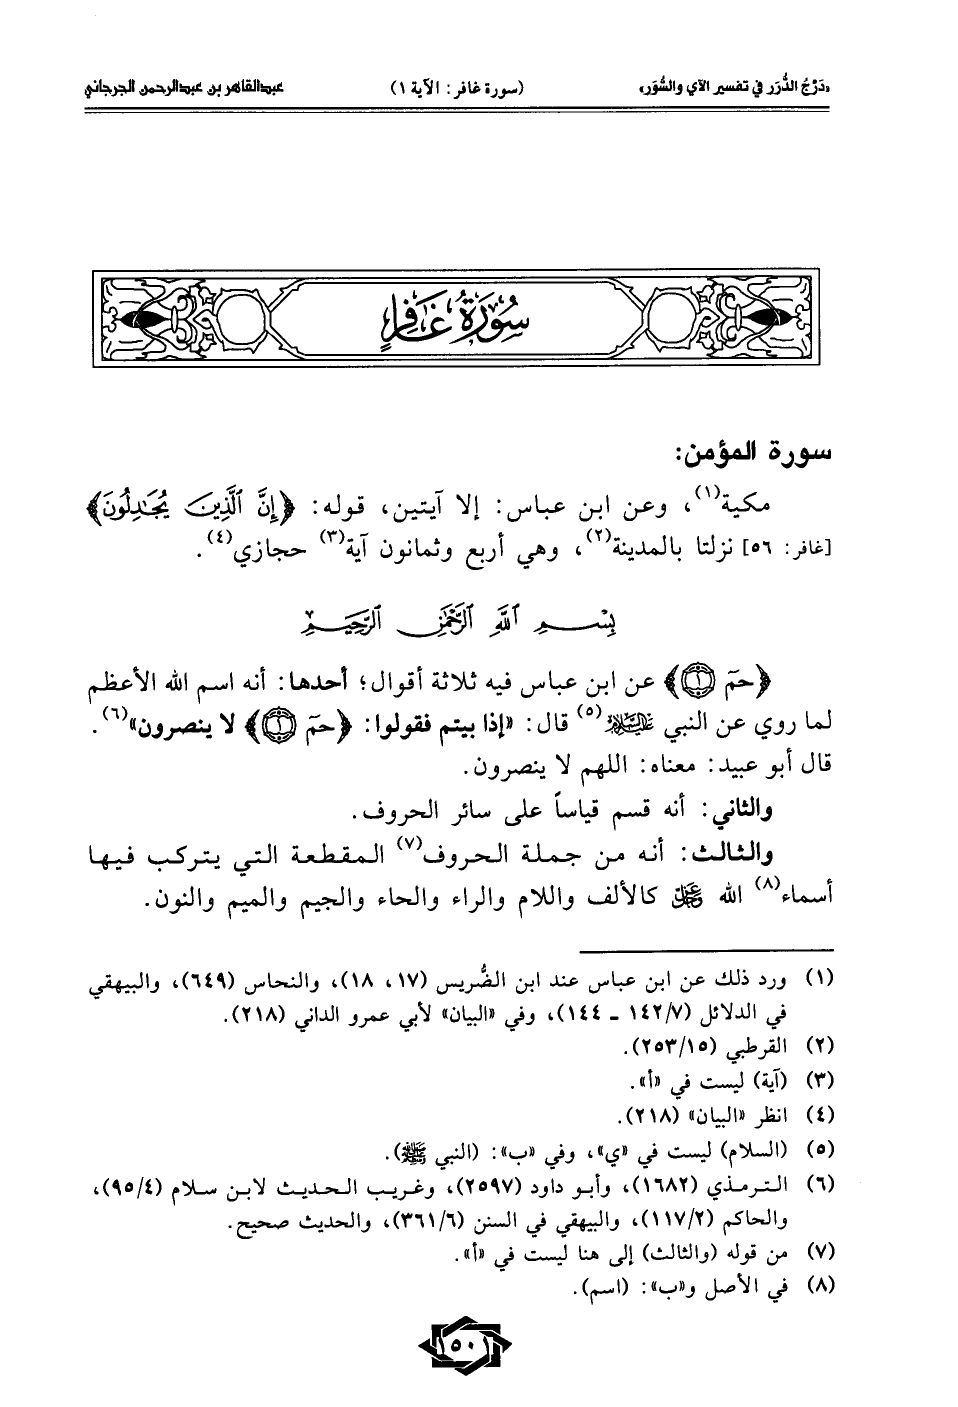 «دَرْجُ الدُّرَر في تفسير الآي والسُّوَر» (سورة غافر: الآية ١) عبدالقاهر بن عبدالرحمن الجرجاني
سُورَةُ غَافِرٍ
سورة المؤمن:
مكية(١)، وعن ابن عباس: إلا آيتين، قوله: ﴿إِنَّ الَّذِينَ يُجَادِلُونَ﴾
[غافر: ٥٦] نزلتا بالمدينة(٢)، وهي أربع وثمانون آية(٣) حجازي(٤).
بِسْمِ اللَّهِ الرَّحْمَٰنِ الرَّحِيمِ
﴿حمٓ ١﴾ عن ابن عباس فيه ثلاثة أقوال؛ أحدها: أنه اسم الله الأعظم
لما روي عن النبي عليه السلام(٥) قال: «إذا بيتم فقولوا: ﴿حمٓ ١﴾ لا ينصرون»(٦).
قال أبو عبيد: معناه: اللهم لا ينصرون.
والثاني: أنه قسم قياساً على سائر الحروف.
والثالث: أنه من جملة الحروف(٧) المقطعة التي يتركب فيها
أسماء(٨) الله عز وجل كالألف واللام والراء والحاء والجيم والميم والنون.
(١) ورد ذلك عن ابن عباس عند ابن الضُّريس (١٧، ١٨)، والنحاس (٦٤٩)، والبيهقي
في الدلائل (١٤٢/٧ ـ ١٤٤)، وفي «البيان» لأبي عمرو الداني (٢١٨).
(٢) القرطبي (٢٥٣/١٥).
(٣) (آية) ليست في «أ».
(٤) انظر «البيان» (٢١٨).
(٥) (السلام) ليست في «ي»، وفي «ب»: (النبي ﷺ).
(٦) الترمذي (١٦٨٢)، وأبو داود (٢٥٩٧)، وغريب الحديث لابن سلام (٩٥/٤)،
والحاكم (١١٧/٢)، والبيهقي في السنن (٣٦١/٦)، والحديث صحيح.
(٧) من قوله (والثالث) إلى هنا ليست في «أ».
(٨) في الأصل و«ب»: (اسم).
١٥٠١